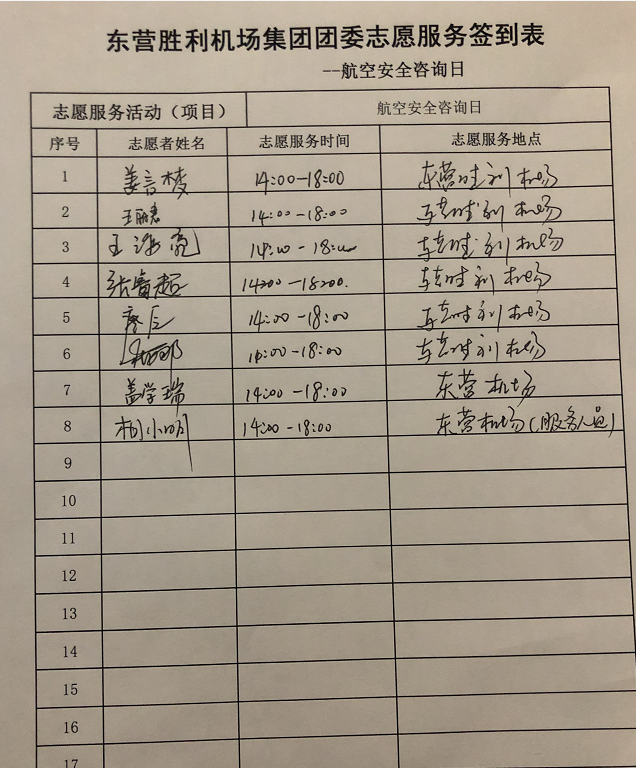 东营胜利机场集团团委志愿服务签到表
--航空安全咨询日
志愿服务活动（项目） 航空安全咨询日
序号 志愿者姓名 志愿服务时间 志愿服务地点
1 姜言梭 14:00-18:00 东营胜利机场
2 王丽君 14:00-18:00 东营胜利机场
3 王海亮 14:00-18:00 东营胜利机场
4 张富超 14:00-18:00. 东营胜利机场
5 14:00-18:00 东营胜利机场
6 14:00-18:00 东营胜利机场
7 盖学瑞 14:00-18:00 东营机场
8 柏小明 14:00-18:00 东营机场(服务人员)
9
10
11
12
13
14
15
16
17